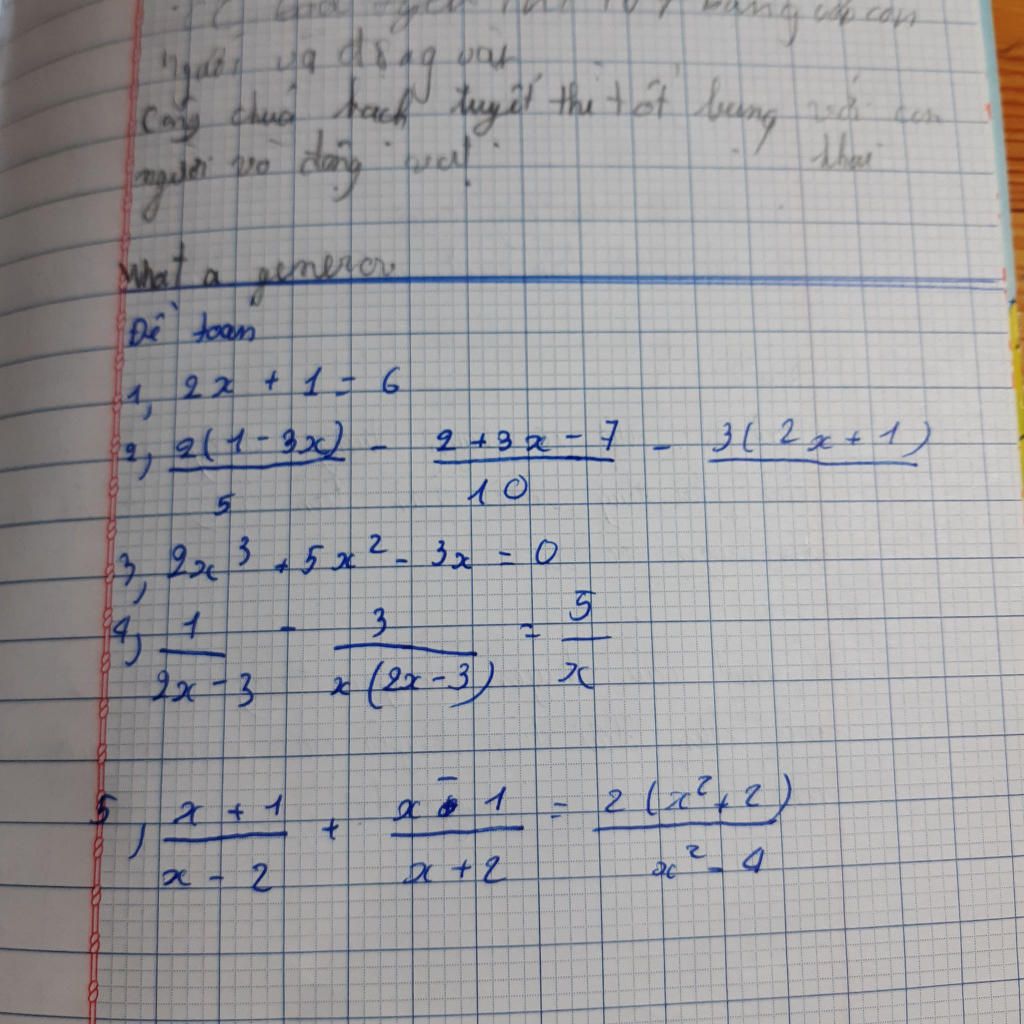 người và động vật
công chúa bạch tuyết thì tốt bụng với con
người và động vật thui
What a generor
Đề toán
1, 2x + 1 = 6
2, 2(1 - 3x)/5 - 2 + 3x - 7/10 - 3(2x + 1)
3, 2x³ + 5x² - 3x = 0
4, 1/2x - 3 - 3/x(2x - 3) = 5/x
5, x + 1/x - 2 + x - 1/x + 2 = 2(x² + 2)/x² - 4